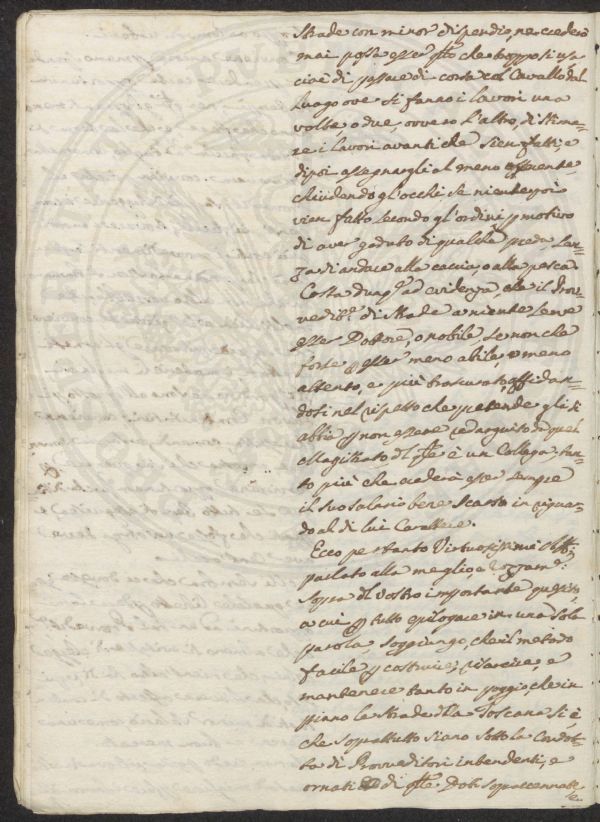 Strade con minor dispendio, ne accederà
mai possa esser che troppo si usi
cioè di passar di corsa col Cavallo dal
luogo ove si fanno i lavori una
volta, o due, ovvero l'altro, di stima-
re i lavori avanti che sien fatti, e
di poi assegnargli al meno offerente,
chiudendo gl'occhi se niente poi
vien fatto secondo gl'ordini p motivo
di aver goduto di qualche preda
di andare alla caccia, o alla pesca
Costa dunq ad evidenza, che il Prov-
ved. di Strade a niente serve
esser Dottore, o nobile, se non che
forse p esser meno abile, e meno
attento, e più trascurato, affidan-
dosi nel rispetto che pretende gli si
abbia p non essere redarguito in quel
Magistrato di è un Collega, tan-
to più che crederà esser sempre
il suo salario bene scarso in riguar-
do al di lui Carattere.
Ecco pertanto Virtuosissimi
parlato alla meglio, e rozzam.
sopra il vostro importante quesito,
a cui p tutto epilogare in una sola
parola, soggiungo, che il metodo
facile p costruire, risarcire, e
mantenere tanto in poggio, che in
piano le strade della Toscana si è
che soprattutto siano sotto la Condot-
ta di Provveditori intendenti, e
ornati di Doti sopraccennate